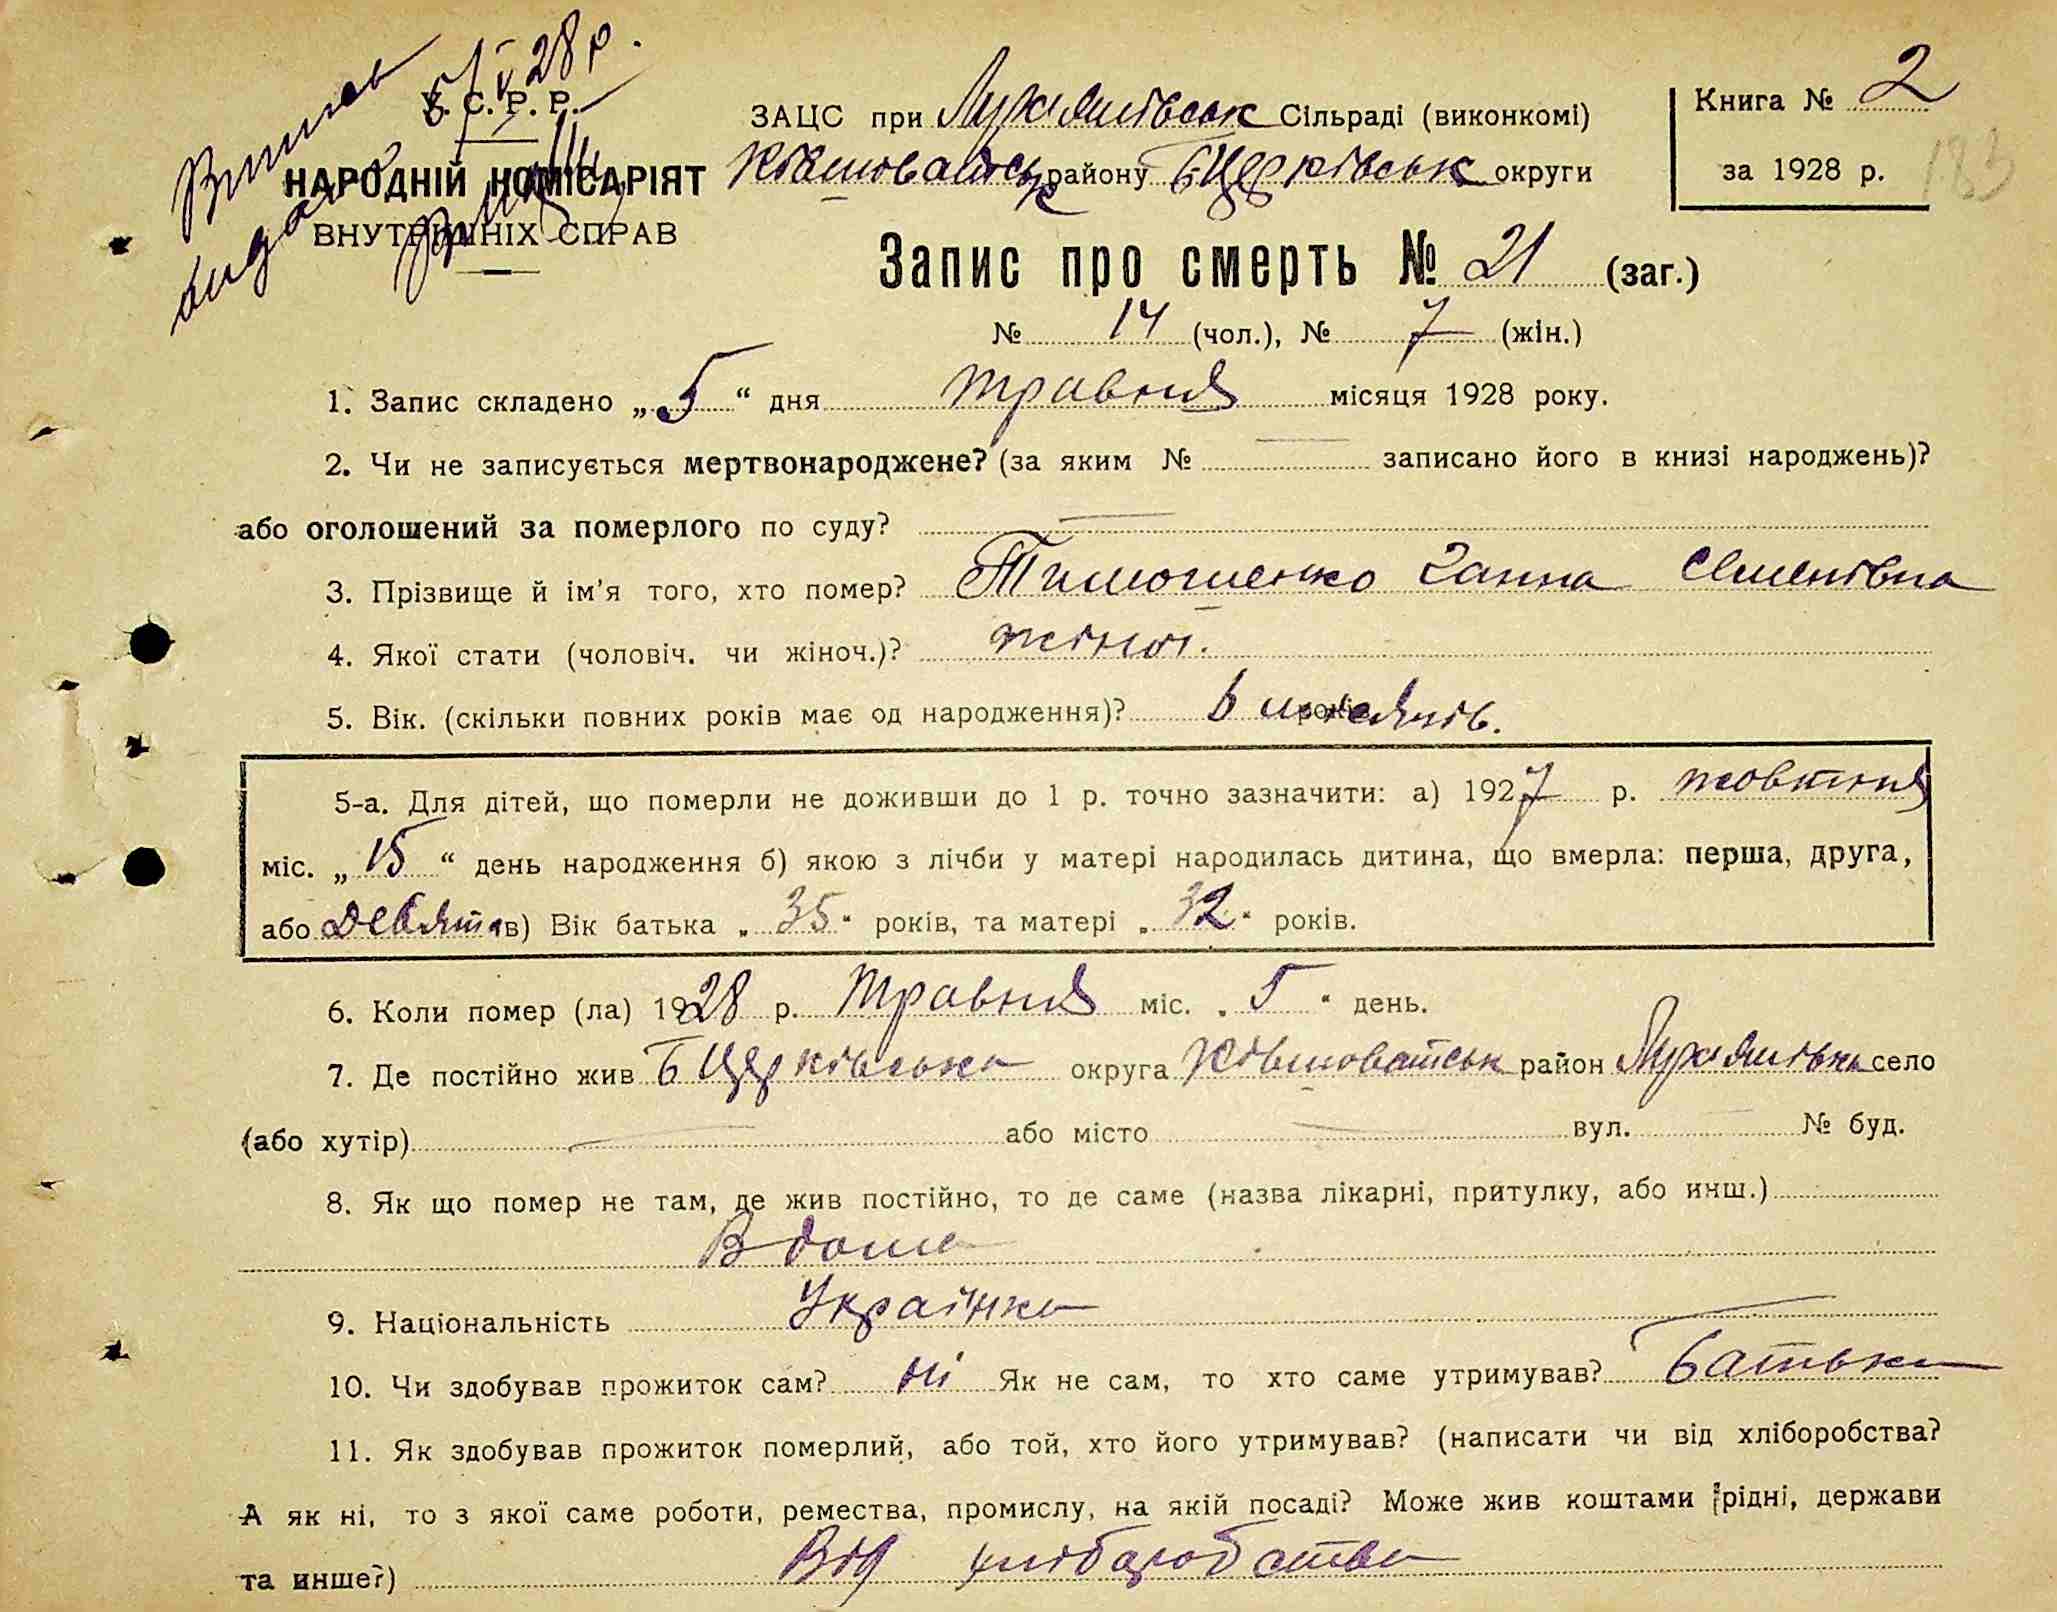 Витяг видано 5/V 28 р.
У. С. Р. Р.
НАРОДНІЙ КОМІСАРІЯТ
ВНУТРІШНІХ СПРАВ
ЗАЦС при Лукіянівськ Сільраді (виконкомі)
Ківшоватськ району Б Церківськ округи
Книга № 2
за 1928 р.
183
Запис про смерть № 21 (заг.)
№ 14 (чол.), № 7 (жін.)
1. Запис складено „ 5 “ дня травня місяця 1928 року.
2. Чи не записується мертвонароджене? (за яким № — записано його в книзі народжень)?
або оголошений за померлого по суду? —
3. Прізвище й ім'я того, хто помер? Тимошенко Ганна Семенівна
4. Якої стати (чоловіч. чи жіноч.)? жіноч.
5. Вік. (скільки повних років має од народження)? 6 місяців.
5-а. Для дітей, що померли не доживши до 1 р. точно зазначити: а) 1927 р. жовтня
міс. „ 15 “ день народження б) якою з лічби у матері народилась дитина, що вмерла: перша, друга,
або девята в) Вік батька „ 35 “ років, та матері „ 32 “ років.
6. Коли помер (ла) 1928 р. травня міс. „ 5 “ день.
7. Де постійно жив Б Церківська округа Ківшоватськ район Лукіянівка село
(або хутір) — або місто — вул. № буд.
8. Як що помер не там, де жив постійно, то де саме (назва лікарні, притулку, або инш.)
Вдома
9. Національність Українка
10. Чи здобував прожиток сам? ні Як не сам, то хто саме утримував? Батько
11. Як здобував прожиток померлий, або той, хто його утримував? (написати чи від хліборобства?
А як ні, то з якої саме роботи, ремества, промислу, на якій посаді? Може жив коштами рідні, держави
та инше?) Від хліборобства